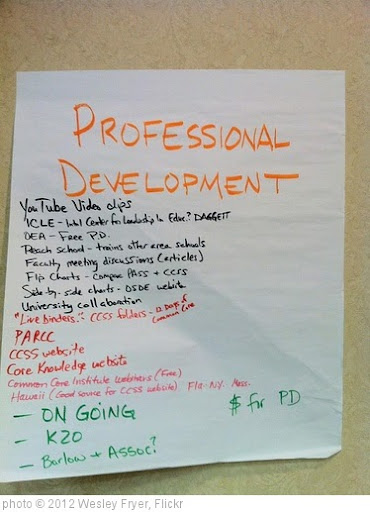 PROFESSIONAL
DEVELOPMENT
YouTube Video clips
ICLE - Intl Center for Leadership in Educ? DAGGETT
OEA - Free P.D.
school - trains other area schools
Faculty meeting discussions (articles)
Flip Charts - Compare PASS + CCSS
Side by side charts - OSDE website
University collaboration
"Live binders." - CCSS folders - 12 Days of
Common Core
PARCC
CCSS website
Core Knowledge website
Common Core Institute webinars (Free)
Hawaii (Good source for CCSS website) Fla. N.Y. Mass.
- ON GOING
$ for PD
- K20
- Barlow + Assoc?
photo © 2012 Wesley Fryer, Flickr